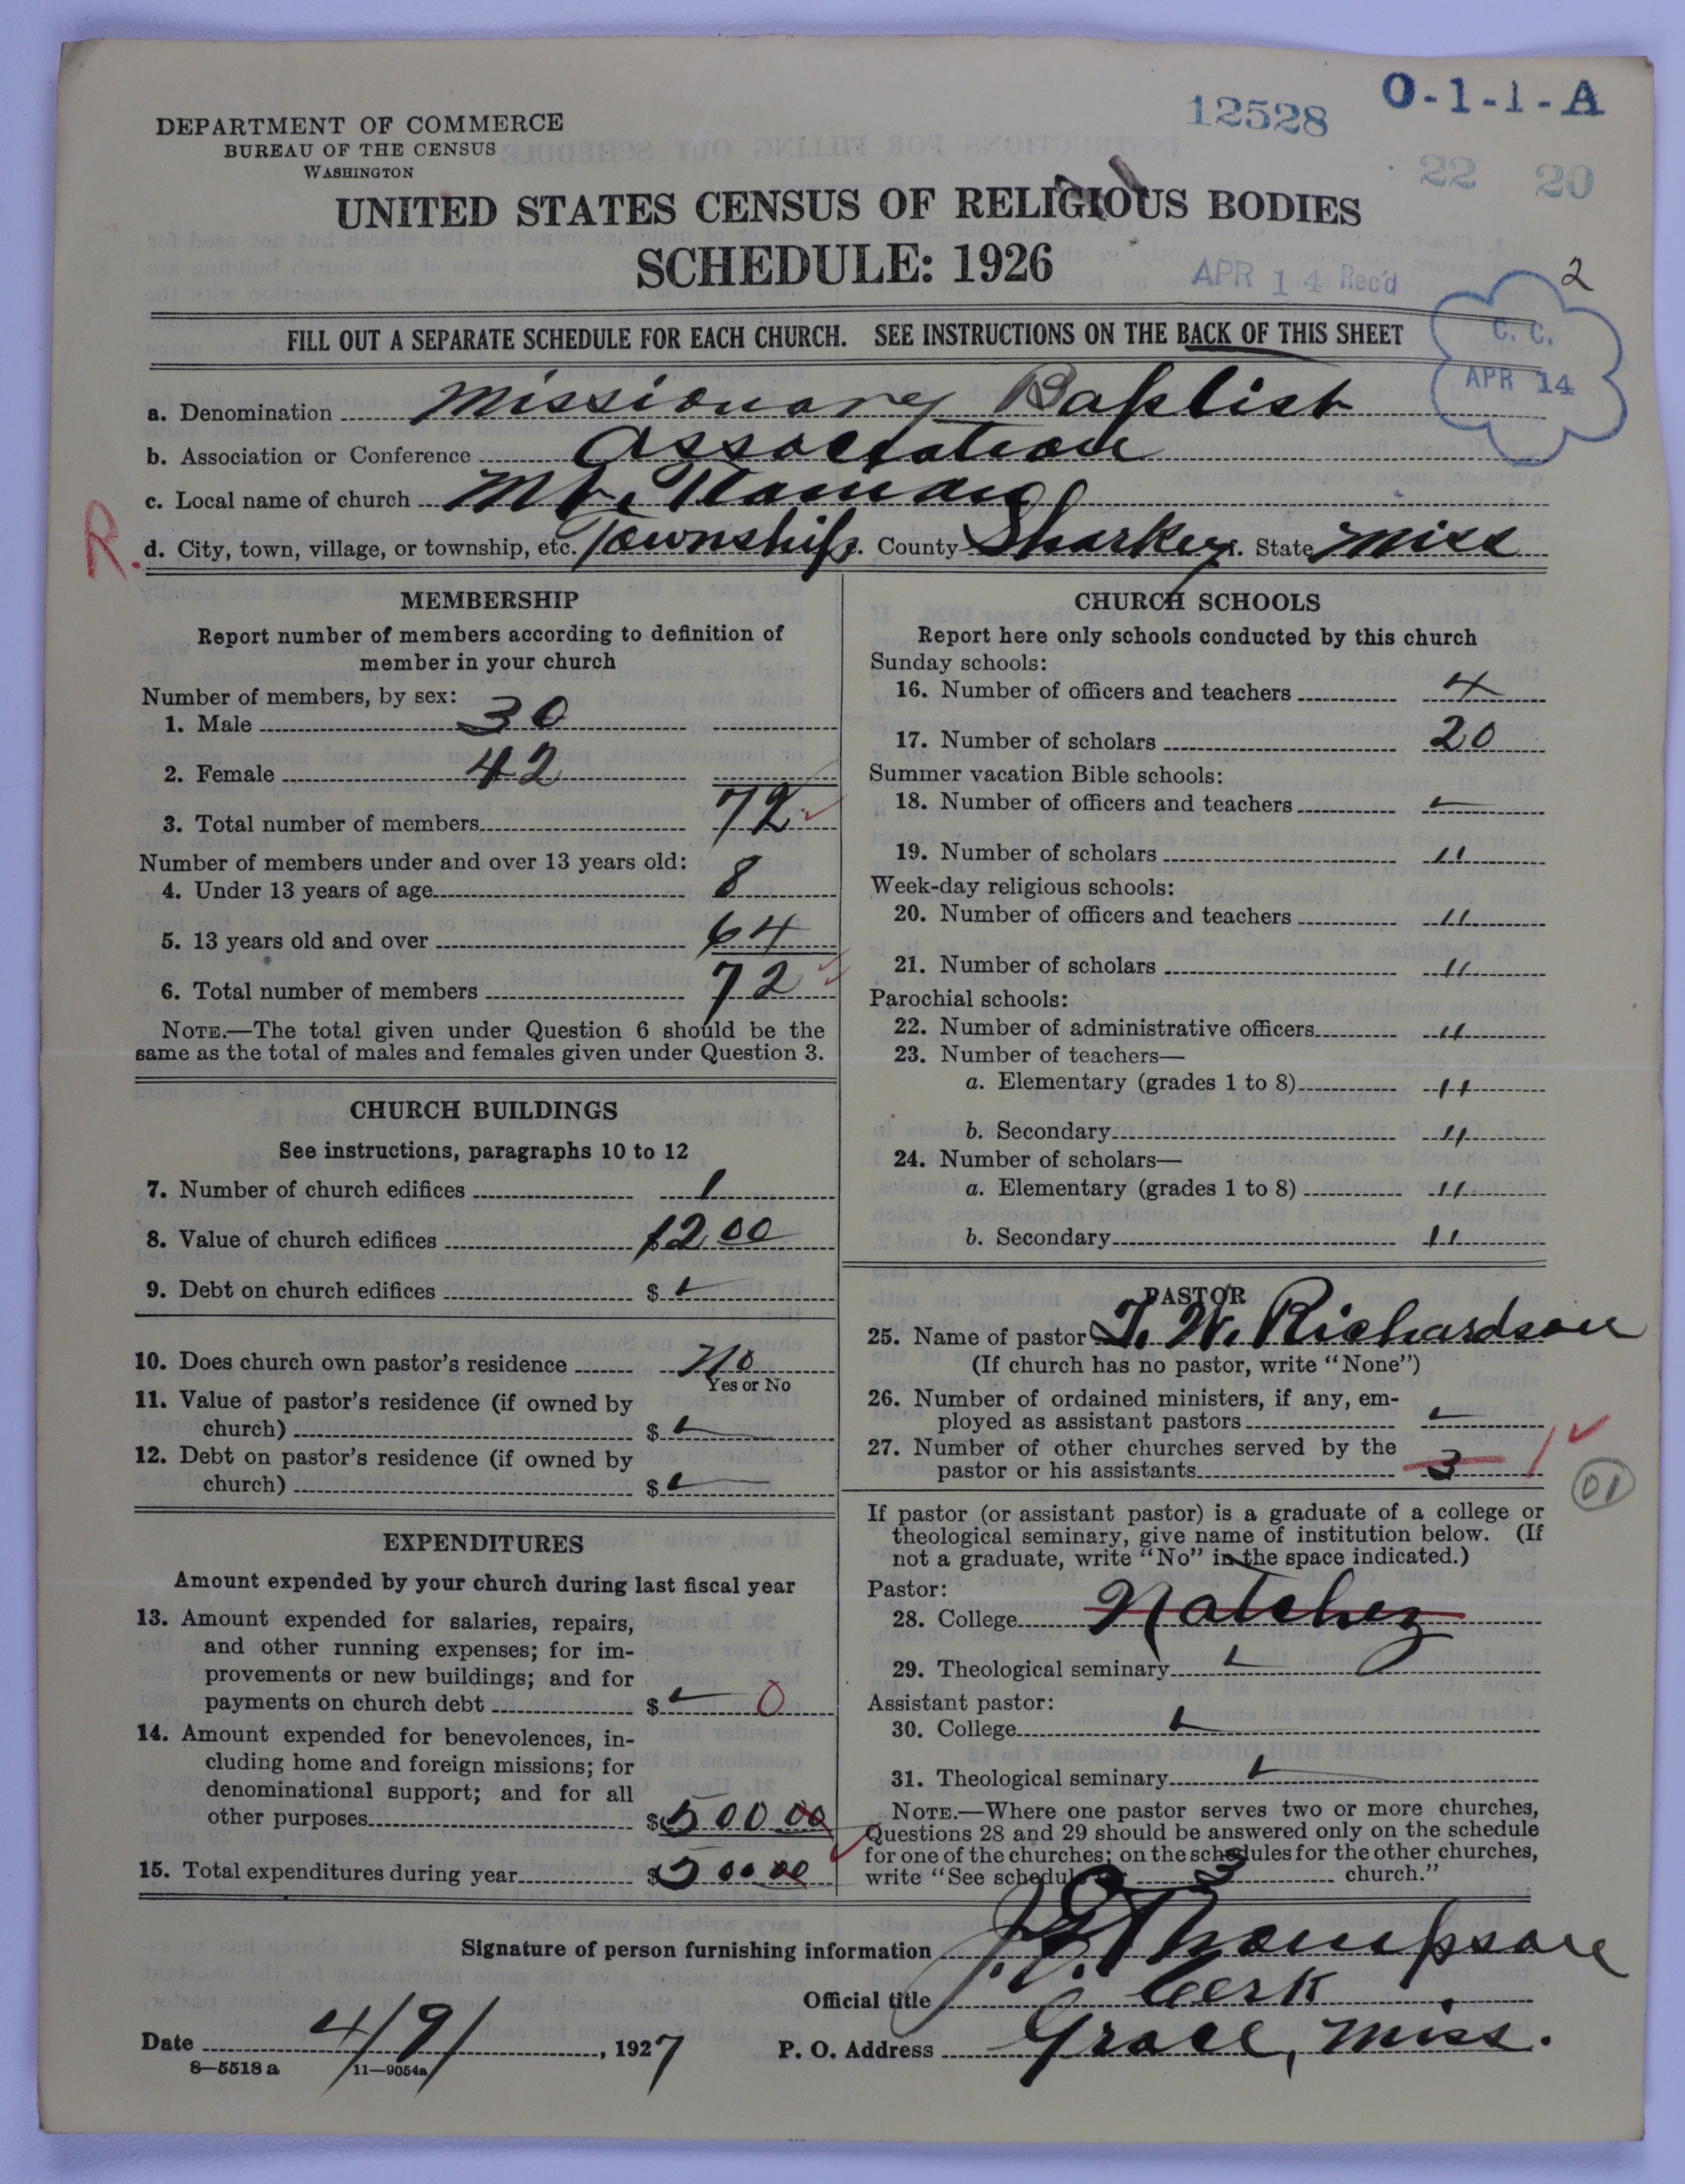 DEPARTMENT OF COMMERCE
BUREAU OF THE CENSUS
WASHINGTON
12528
O-1-1-A
22 20
UNITED STATES CENSUS OF RELIGIOUS BODIES
SCHEDULE: 1926
APR 14 Rec'd
2
C. C.
APR 14
FILL OUT A SEPARATE SCHEDULE FOR EACH CHURCH. SEE INSTRUCTIONS ON THE BACK OF THIS SHEET
a. Denomination Missionary Baptist
b. Association or Conference Association
c. Local name of church Mt.
R.
d. City, town, village, or township, etc. Township. County Sharkey. State Miss
MEMBERSHIP
Report number of members according to definition of
member in your church
Number of members, by sex:
1. Male 30
2. Female 42
3. Total number of members 72
Number of members under and over 13 years old:
4. Under 13 years of age 8
5. 13 years old and over 64
6. Total number of members 72
NOTE.—The total given under Question 6 should be the
same as the total of males and females given under Question 3.
CHURCH BUILDINGS
See instructions, paragraphs 10 to 12
7. Number of church edifices 1
8. Value of church edifices $1200
9. Debt on church edifices $
10. Does church own pastor's residence No
Yes or No
11. Value of pastor's residence (if owned by
church) $
12. Debt on pastor's residence (if owned by
church) $
EXPENDITURES
Amount expended by your church during last fiscal year
13. Amount expended for salaries, repairs,
and other running expenses; for im-
provements or new buildings; and for
payments on church debt $ 0
14. Amount expended for benevolences, in-
cluding home and foreign missions; for
denominational support; and for all
other purposes $500 00
15. Total expenditures during year $500 00
CHURCH SCHOOLS
Report here only schools conducted by this church
Sunday schools:
16. Number of officers and teachers 4
17. Number of scholars 20
Summer vacation Bible schools:
18. Number of officers and teachers
19. Number of scholars "
Week-day religious schools:
20. Number of officers and teachers "
21. Number of scholars "
Parochial schools:
22. Number of administrative officers "
23. Number of teachers—
a. Elementary (grades 1 to 8) "
b. Secondary "
24. Number of scholars—
a. Elementary (grades 1 to 8) "
b. Secondary "
PASTOR
25. Name of pastor T. W. Richardson
(If church has no pastor, write "None")
26. Number of ordained ministers, if any, em-
ployed as assistant pastors
27. Number of other churches served by the
pastor or his assistants 3 1
01
If pastor (or assistant pastor) is a graduate of a college or
theological seminary, give name of institution below. (If
not a graduate, write "No" in the space indicated.)
Pastor:
28. College Natchez
29. Theological seminary
Assistant pastor:
30. College
31. Theological seminary
NOTE.—Where one pastor serves two or more churches,
Questions 28 and 29 should be answered only on the schedule
for one of the churches; on the schedules for the other churches,
write "See schedule 3 church."
Signature of person furnishing information J. E. Thompson
Official title Clerk
Date 4/9/, 1927 P. O. Address Grace, Miss.
8—5518 a 11—9054a